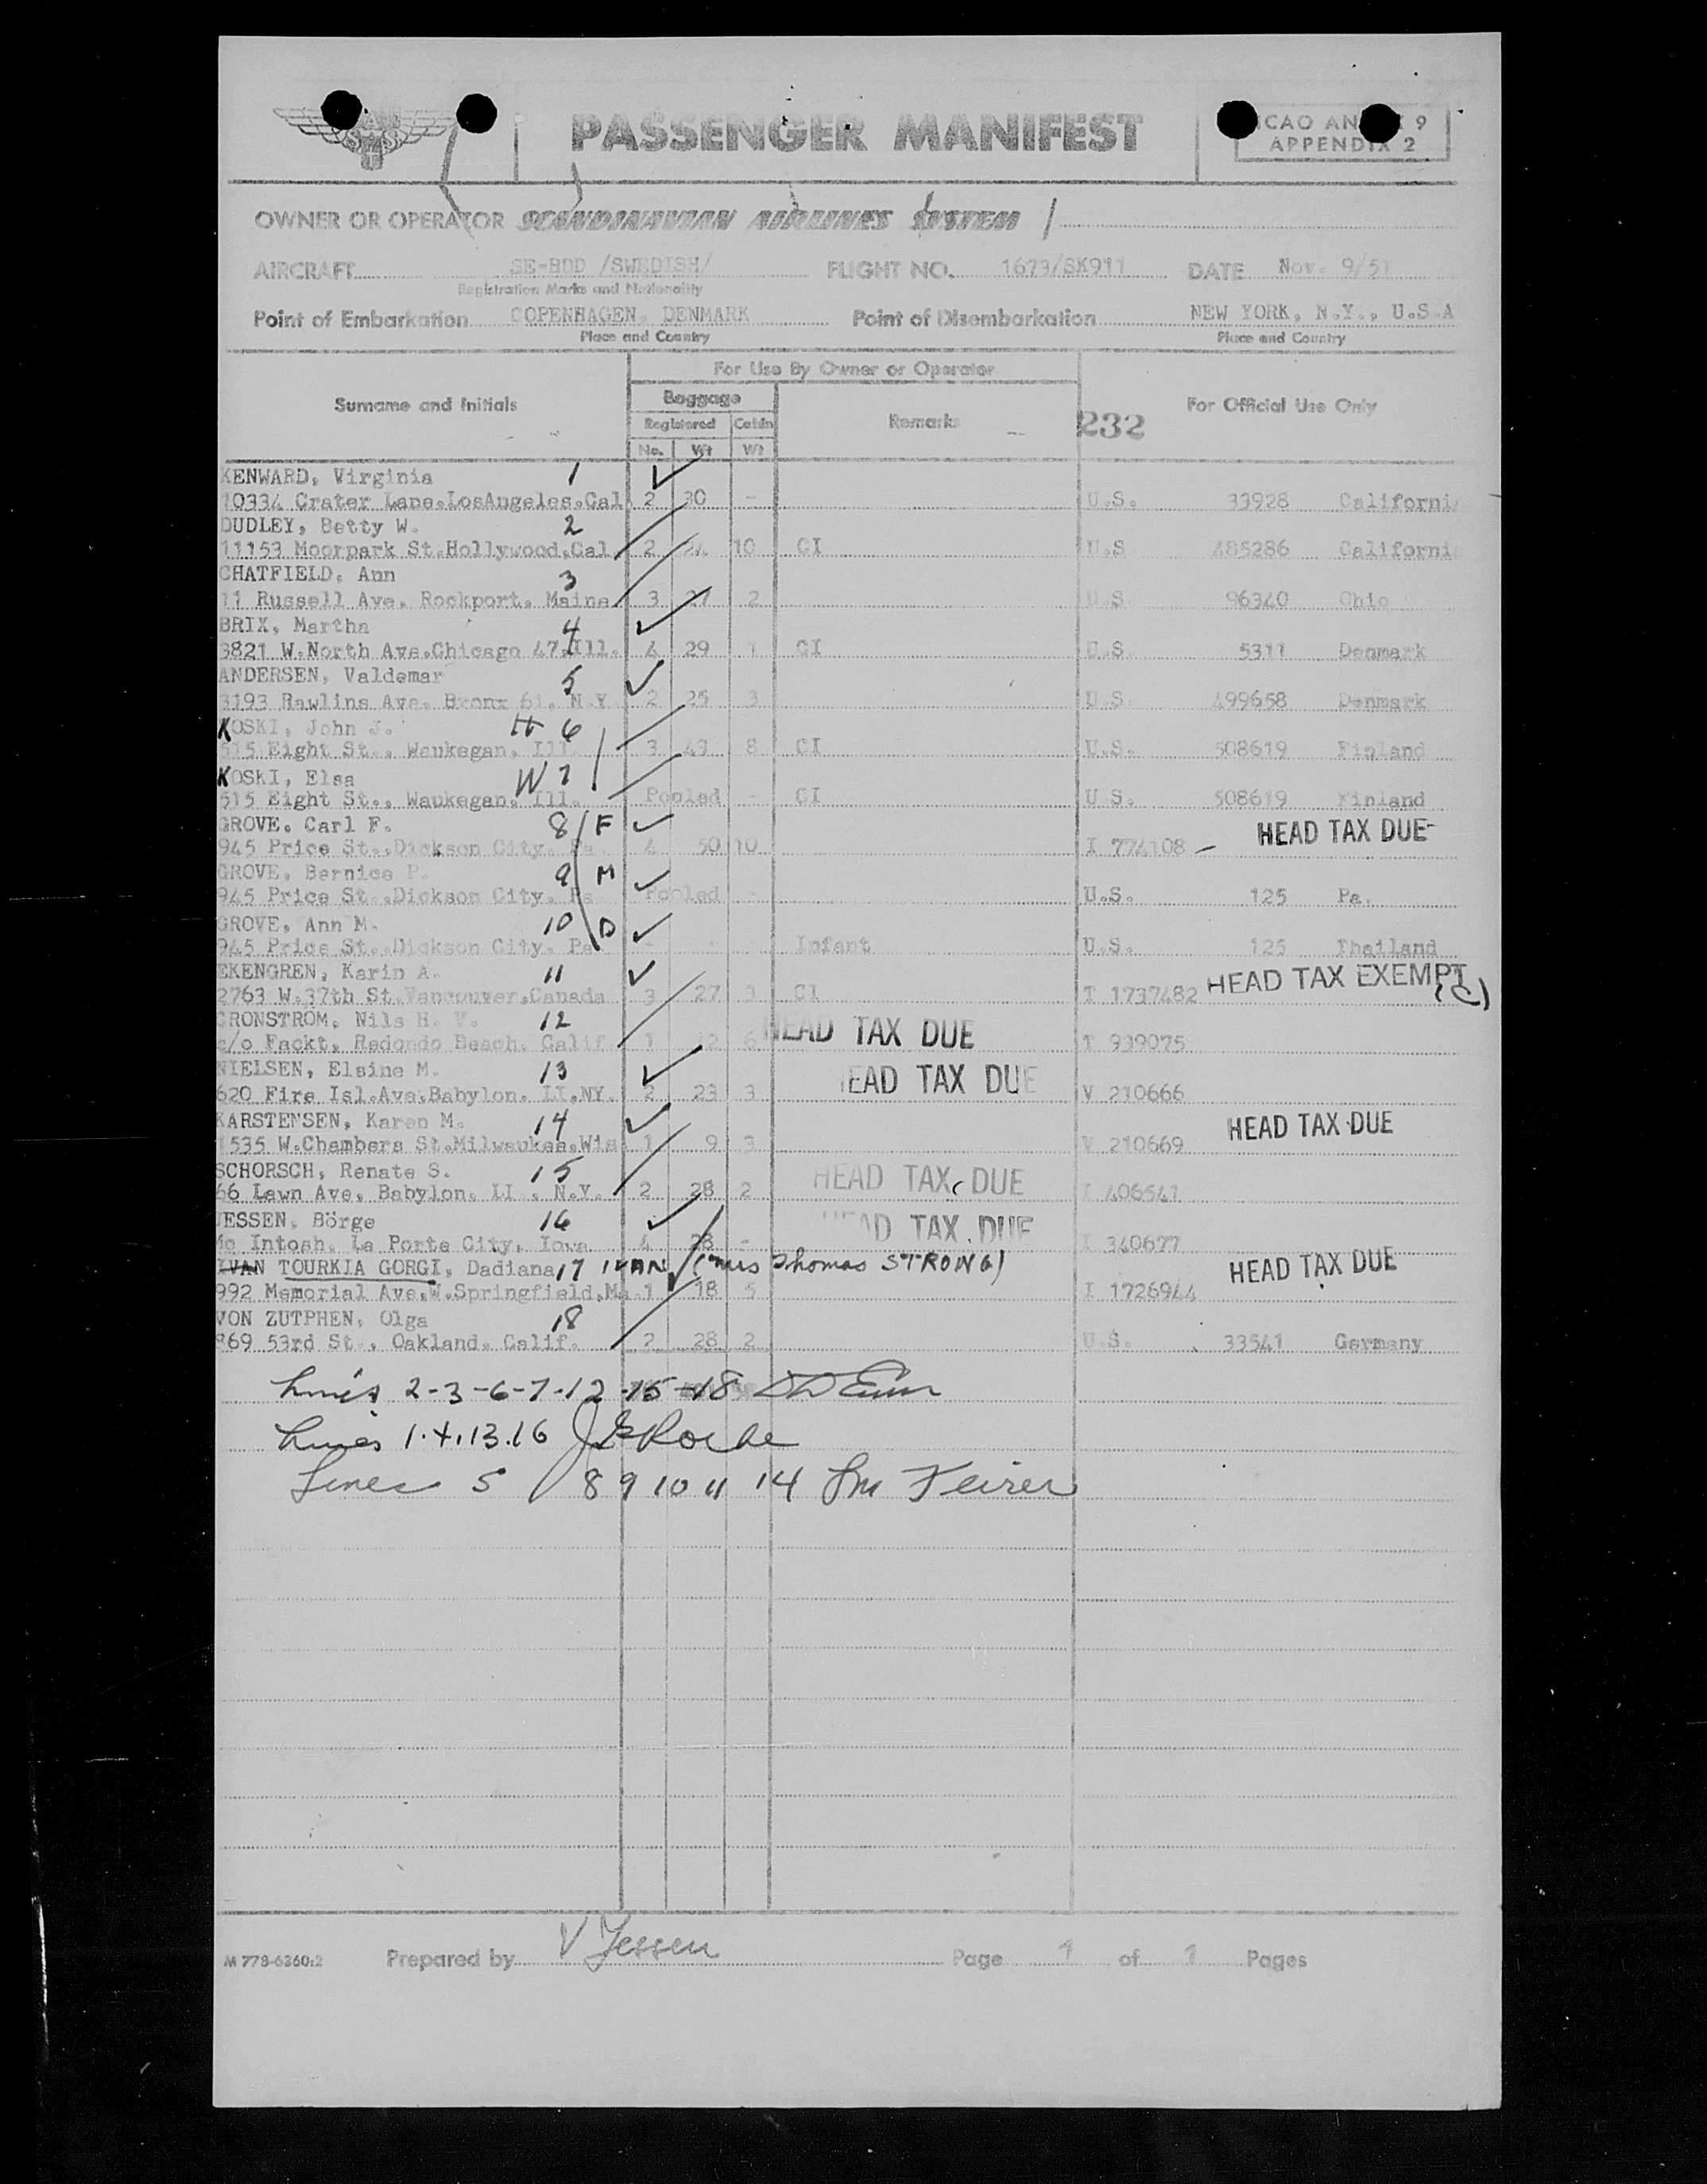 PASSENGER MANIFEST
ICAO ANNEX 9
APPENDIX 2
OWNER OR OPERATOR SCANDINAVIAN AIRLINES SYSTEM
AIRCRAFT SE-BDD /SWEDISH/ FLIGHT NO. 1673/SK911 DATE Nov. 9/51
Registration Marks and Nationality
Point of Embarkation COPENHAGEN, DENMARK Point of Disembarkation NEW YORK, N.Y., U.S.A
Place and Country Place and Country
For Use By Owner or Operator
Surname and Initials Baggage Remarks 232 For Official Use Only
Registered Cabin
No. Wt Wt
KENWARD, Virginia 1
10334 Crater Lane.LosAngeles.Cal 2 30 - U.S. 33928 California
DUDLEY, Betty W. 2
11153 Moorpark St.Hollywood.Cal. 2 10 CI U.S. 485286 California
CHATFIELD, Ann 3
11 Russell Ave. Rockport. Maine 3 27 2 U.S. 96340 Ohio
BRIX, Martha 4
3821 W.North Ave.Chicago 47.Ill. 4 29 1 CI U.S. 5311 Denmark
ANDERSEN, Valdemar 5
3193 Rawlins Ave. Bronx 61. N.Y. 2 25 3 U.S. 499658 Denmark
KOSKI, John J. H 6
515 Eight St., Waukegan. Ill. 3 43 8 CI U.S. 508619 Finland
KOSKI, Elsa W 7
515 Eight St., Waukegan. Ill. Pooled - CI U.S. 508619 Finland
GROVE. Carl F. 8 F HEAD TAX DUE
945 Price St.,Dickson City. Pa. 4 50 10 I 774108
GROVE, Bernice P. 9 M
945 Price St.,Dickson City. Pa Pooled - U.S. 125 Pa.
GROVE, Ann M. 10 D
945 Price St.,Dickson City. Pa - - Infant U.S. 125 Thailand
EKENGREN, Karin A. 11 HEAD TAX EXEMPT
2763 W.37th St.Vancouver.Canada 3 27 3 CI T 1737482 (C)
CRONSTROM, Nils H. V. 12 HEAD TAX DUE
c/o Fackt, Redondo Beach. Calif 1 12 6 T 939075
NIELSEN, Elsine M. 13 HEAD TAX DUE
620 Fire Isl.Ave.Babylon. LI.NY. 2 23 3 V 210666
KARSTENSEN, Karen M. 14 HEAD TAX DUE
1535 W.Chambers St.Milwaukee.Wis 1 9 3 V 210669
SCHORSCH, Renate S. 15 HEAD TAX DUE
66 Lawn Ave, Babylon. LI., N.Y. 2 28 2 I 406541
JESSEN, Börge 16 HEAD TAX DUE
Mc Intosh. La Porte City, Iowa 4 28 - I 340677
IVAN TOURKIA GORGI, Dadiana 17 IVAN (Mrs Thomas STRONG) HEAD TAX DUE
992 Memorial Ave.W.Springfield.Ma. 1 18 5 I 1726944
VON ZUTPHEN, Olga 18
869 53rd St., Oakland. Calif. 2 28 2 U.S. 33541 Germany
Lines 2-3-6-7-12-15-18
Lines 1.4.13.16
Lines 5 8 9 10 11 14
M 778-6360:2 Prepared by V Jessen Page 1 of 1 Pages